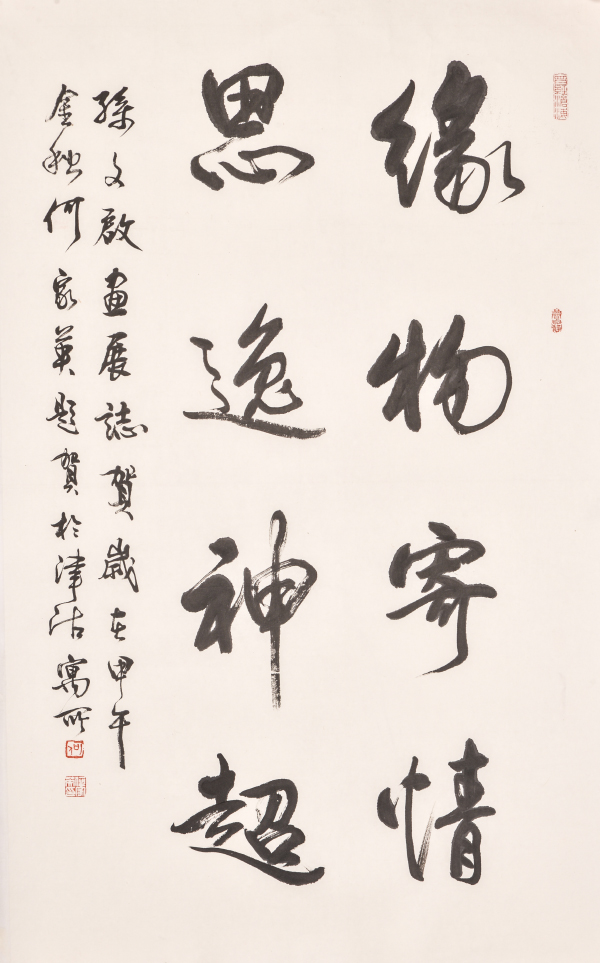 缘物寄情
思逸神超
孫文啟畫展誌賀歲在甲午
金秋何家英題賀於津沽寓所
何